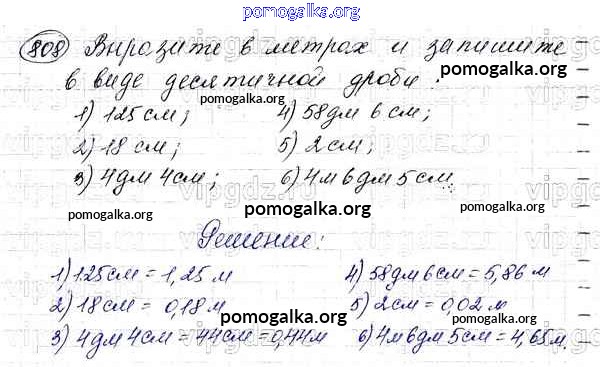 pomogalka.org
808 Выразите в метрах и запишите
в виде десятичной дроби:
pomogalka.org
pomogalka.org
1) 125 см; 4) 58 дм 6 см;
2) 18 см; 5) 2 см;
vipgdz.ru vipgdz.ru vipgdz.ru
pomogalka.org
3) 4 дм 4 см; 6) 4 м 6 дм 5 см.
vipgdz.ru vipgdz.ru vipgdz.ru
pomogalka.org pomogalka.org pomogalka.org
Решение:
1) 125 см = 1,25 м 4) 58 дм 6 см = 5,86 м
2) 18 см = 0,18 м 5) 2 см = 0,02 м
pomogalka.org
3) 4 дм 4 см = 44 см = 0,44 м 6) 4 м 6 дм 5 см = 4,65 м.
pomogalka.org